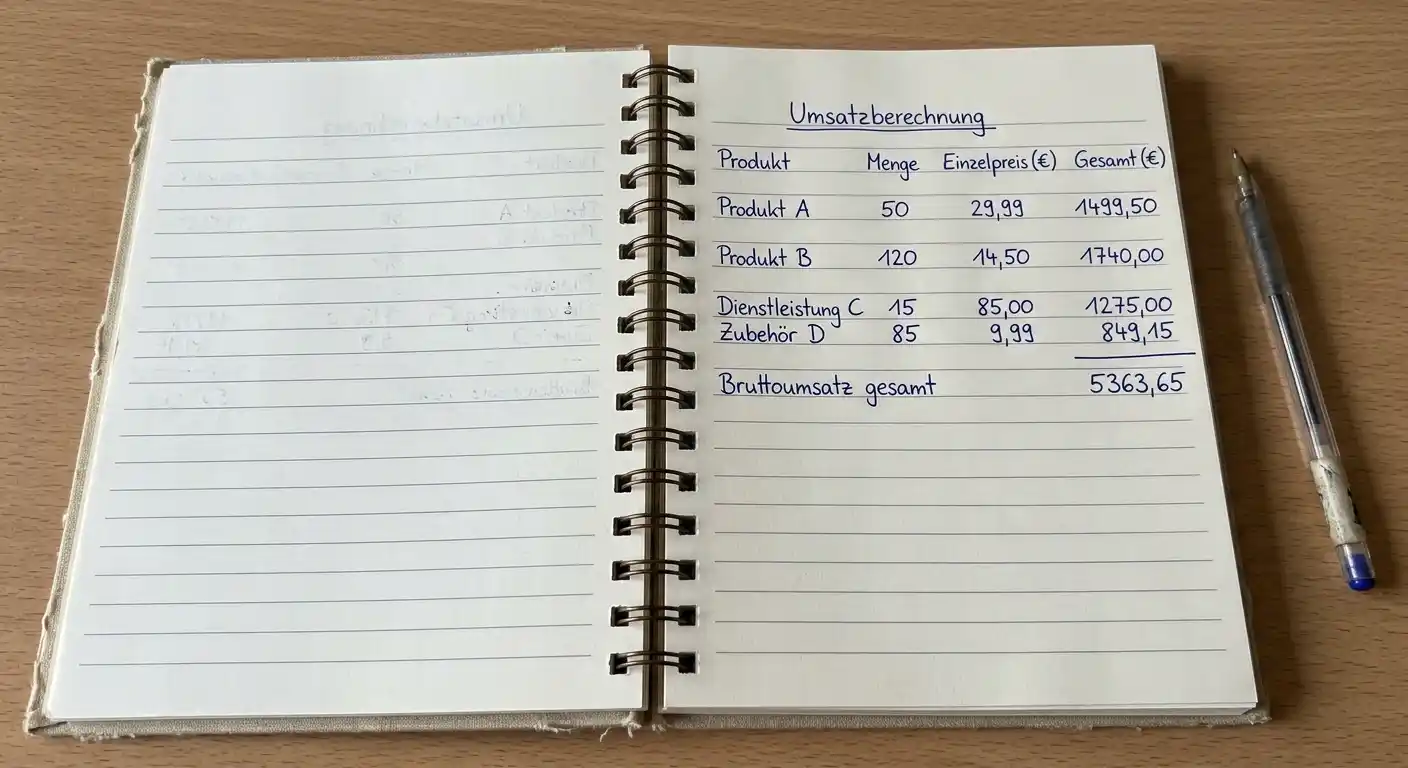 Umsatzberechnung
Produkt Menge Einzelpreis (€) Gesamt (€)
Produkt A 50 29,99 1499,50
Produkt B 120 14,50 1740,00
Dienstleistung C 15 85,00 1275,00
Zubehör D 85 9,99 849,15
Bruttoumsatz gesamt 5363,65